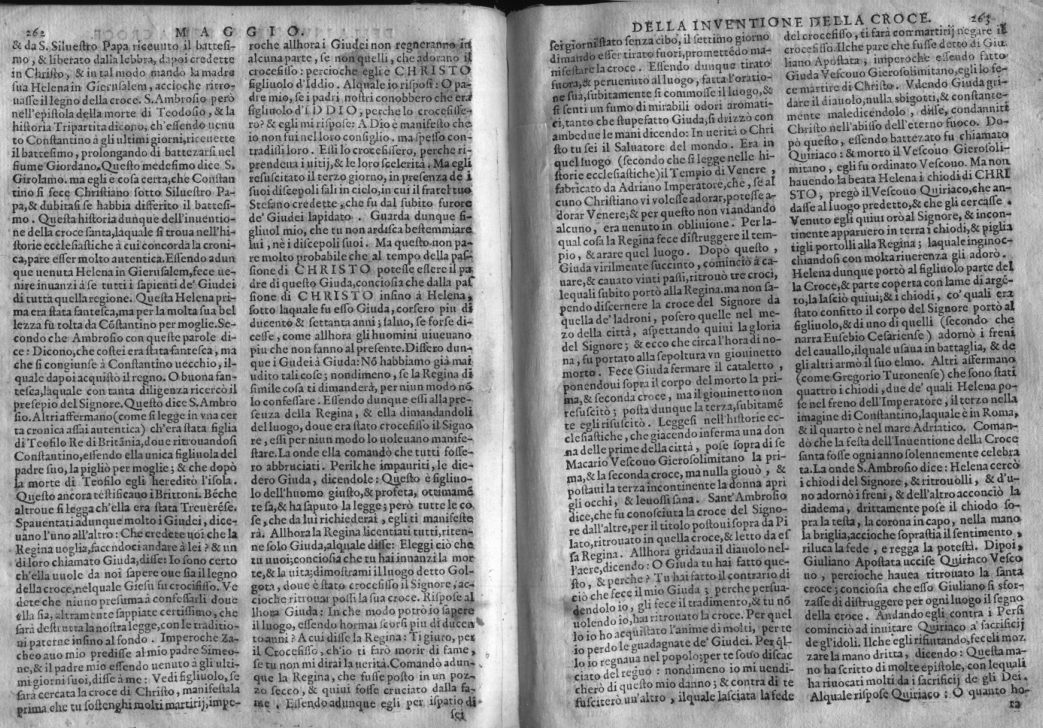 262 MAGGIO.
& da S. Siluestro Papa riceuuto il battesi-
mo, & liberato dalla lebbra, dapoi credette
in Christo, & in tal modo mando la madre
sua Helena in Gierusalem, accioche ritro-
uasse il legno della croce. S. Ambrosio però
nell'epistola della morte di Teodosio, & la
historia Tripartita dicono, ch'essendo uenu
to Constantino à gli ultimi giorni, riceuette
il battesimo, prolongando di battezarsi nel
fiume Giordano. Questo medesimo dice S.
Girolamo. ma egli e cosa certa, che Constan
tino si fece Christiano sotto Siluestro Pa-
pa, & dubitasi se habbia differito il battesi-
mo. Questa historia dunque dell'inuentio-
ne della croce santa, laquale si troua nell'hi-
storie ecclesiastiche à cui concorda la croni-
ca, pare esser molto autentica. Essendo adun
que uenuta Helena in Gierusalem, fece ue-
nire inuanzi à se tutti i sapienti de' Giudei
di tutta quella regione. Questa Helena pri-
ma era stata fantesca, ma per la molta sua bel
lezza fu tolta da Cõstantino per moglie. Se-
condo che Ambrosio con queste parole di-
ce: Dicono, che costei era stata fantesca, ma
che si congiunse à Constantino uecchio, il-
quale dapoi acquistò il regno. O buona fan-
tesca, laquale con tanta diligenza ricercò il
presepio del Signore. Questo dice S. Ambro
sio. Altri affermano (come si legge in vna cer
ta cronica assai autentica) ch'era stata figlia
di Teofilo Re di Britãnia, doue ritrouandosi
Constantino, essendo ella unica figliuola del
padre suo, la pigliò per moglie; & che dopò
la morte di Teofilo egli hereditò l'isola.
Questo ancora testificano i Brittoni. Bẽche
altroue si legga ch'ella era stata Treuerese.
Spauentati adunque molto i Giudei, dice-
uano l'uno all'altro: Che credete uoi che la
Regina uoglia, facendoci andare à lei? & un
di loro chiamato Giuda, disse: Io sono certo
ch'ella uuole da noi sapere oue sia il legno
della croce, nelquale Giesu fu crocifisso. Ve
dete che niuno presuma à confessarli doue
ella sia, altramente sappiate certissimo, che
sarà destrutta la nostra legge, con le traditio-
ni paterne insino al fondo. Imperoche Za-
cheo auo mio predisse al mio padre Simeo-
ne, & il padre mio essendo uenuto à gli ulti-
mi giorni suoi, disse à me: Vedi figliuolo, se
sarà cercata la croce di Christo, manifestala
prima che tu sostenghi molti martirij, impe-
roche allhora i Giudei non regneranno in
alcuna parte, se non quelli, che adorano il
crocefisso: percioche egli e CHRISTO
figliuolo d'Iddio. Alquale io risposi: O pa-
dre mio, se i padri nostri conobbero che era
figliuolo d'IDDIO, perche lo crocefisse-
ro? & egli mi rispose: A Dio è manifesto che
io non fui nel loro consiglio, ma spesso con-
tradissi loro. Essi lo crocefissero, perche ri-
prendeua i uitij, & le loro scelerità. Ma egli
resuscitato il terzo giorno, in presenza de i
suoi discepoli salì in cielo, in cui il fratel tuo
Stefano credette, che fu dal subito furore
de' Giudei lapidato. Guarda dunque fi-
gliuol mio, che tu non ardisca bestemmiare
lui, nè i discepoli suoi. Ma questo non pa-
re molto probabile che al tempo della pas-
sione di CHRISTO potesse essere il pa
dre di questo Giuda, conciosia che dalla pas
sione di CHRISTO insino à Helena,
sotto laquale fu esso Giuda, corsero piu di
ducento & settanta anni; saluo, se forse di-
cesse, come allhora gli huomini uiueuano
piu che non fanno al presente. Dissero dun-
que i Giudei à Giuda: Nõ habbiamo giä mai
udito tali cose; nondimeno, se la Regina di
simile cosa ti dimanderà, per niun modo nõ
lo confessare. Essendo dunque essi alla pre-
senza della Regina, & ella dimandandoli
del luogo, doue era stato crocefisso il Signo
re, essi per niun modo lo uoleuano manife-
stare. La onde ella commandò che tutti fosse-
ro abbruciati. Perilche impauriti, le die-
dero Giuda, dicendole: Questo e figliuo-
lo dell'huomo giusto, & profeta, ottimamẽ
te sa, & ha saputo la legge; però tutte le co
se, che da lui richiederai, egli ti manifeste
rà. Allhora la Regina licentiati tutti, riten-
ne solo Giuda, alquale disse: Eleggi ciò che
tu uuoi; conciosia che tu hai inuanzi la mor
te, & la uita; dimostrami il luogo detto Gol-
gota, doue è stato crocefisso il Signore, ac-
cioche ritrouar possi la sua croce. Rispose al
lhora Giuda: In che modo potrò io sapere
il luogo, essendo hormai scorsi piu di ducen
to anni? A cui disse la Regina: Ti giuro, per
il Crocefisso, ch'io ti farò morir di fame,
se tu non mi dirai la uerità. Comandò adun-
que la Regina, che fusse posto in un poz-
zo secco, & quiui fosse cruciato dalla fa-
me. Essendo adunque egli per ispatio di
sei
DELLA INVENTIONE DELLA CROCE. 263
sei giorni stato senza cibo, il settimo giorno
dimandò esser tirato fuori, promettẽdo ma-
nifestare la croce. Essendo dunque tirato
fuora, & peruenuto al luogo, fatta l'oratio-
ne sua, subitamente si commosse il luogo, &
si senti un fumo di mirabili odori aromati-
ci, tanto che stupefatto Giuda, si drizzò con
ambedue le mani dicendo: In uerità o Chri
sto tu sei il Saluatore del mondo. Era in
quel luogo (secondo che si legge nelle hi-
storie ecclesiastiche) il Tempio di Venere,
fabricato da Adriano Imperatore, che, se al
cuno Christiano vi volesse adorar, potesse a-
dorar Venere; & per questo non vi andando
alcuno, era uenuto in obliuione. Per la-
qual cosa la Regina fece distruggere il tem-
pio, & arare quel luogo. Dopò questo,
Giuda virilmente succinto, cominciò à ca-
uare, & cauato vinti passi, ritrouò tre croci,
lequali subito portò alla Regina. ma non sa-
pendo discernere la croce del Signore da
quella de' ladroni, posero quelle nel me-
zo della città, aspettando quiui la gloria
del Signore; & ecco che circa l'hora di no-
na, fu portato alla sepoltura vn giouinetto
morto. Fece Giuda fermare il cataletto,
ponendoui sopra il corpo del morto la pri-
ma, & seconda croce, ma il giouinetto non
resuscitò; posta dunque la terza, subitamẽ
te egli risuscitò. Leggesi nell'historie ec-
clesiastiche, che giacendo inferma una don
na delle prime della città, pose sopra di se
Macario Vescouo Gierosolimitano la pri-
ma, & la seconda croce, ma nulla giouò, &
postaui la terza incontinente la donna aprì
gli occhi, & leuossi sana. Sant'Ambrosio
dice, che fu conosciuta la croce del Signo-
re dall'altre, per il titolo postoui sopra da Pi
lato, ritrouato in quella croce, & letto da es
sa Regina. Allhora gridaua il diauolo nel-
l'aere, dicendo: O Giuda tu hai fatto que-
sto, & perche? Tu hai fatto il contrario di
ciò che fece il mio Giuda; perche persua-
dendolo io, gli fece il tradimento, & tu nõ
uolendo io, hai ritrouato la croce. Per quel
lo io ho acquistato l'anime di molti, per te
io perdo le guadagnate de' Giudei. Per q̃l-
lo io regnaua nel popolo; per te sono discac
ciato del regno: nondimeno io mi uendi-
cherò di questo mio danno; & contra di te
susciterò un'altro, ilquale lasciata la fede
del crocefisso, ti farà con martirij negare il
crocefisso. Ilche pare che fusse detto di Giu-
liano Apostata, imperoche essendo fatto
Giuda Vescouo Gierosolimitano, egli lo fe-
ce martire di Christo. Vdendo Giuda gri-
dare il diauolo, nulla sbigottì, & constante-
mente maledicendolo, disse, condanniti
Christo nell'abisso dell'eterno fuoco. Do-
pò questo, essendo battezato fu chiamato
Quiriaco: & morto il Vescouo Gierosoli-
mitano, egli fu ordinato Vescouo. Ma non
hauendo la beata Helena i chiodi di CHRI
STO, pregò il Vescouo Quiriaco, che an-
dasse al luogo predetto, & che gli cercasse.
Venuto egli quiui orò al Signore, & incon-
tinente apparuero in terra i chiodi, & piglia
tigli portolli alla Regina; laquale inginoc-
chiandosi con molta riuerenza gli adorò.
Helena dunque portò al figliuolo parte del
la Croce, & parte coperta con lame di argẽ-
to, la lasciò quiui; & i chiodi, co' quali era
stato confitto il corpo del Signore portò al
figliuolo, & di uno di quelli (secondo che
narra Eusebio Cesariense) adornò i freni
del cauallo, ilquale usaua in battaglia, & de
gli altri armò il suo elmo. Altri affermano
(come Gregorio Turonense) che sono stati
quattro i chiodi, due de' quali Helena po-
se nel freno dell'Imperatore, il terzo nella
imagine di Constantino, laquale è in Roma,
& il quarto è nel mare Adriatico. Coman-
dò che la festa dell'Inuentione della Croce
santa fosse ogni anno solennemente celebra
ta. La onde S. Ambrosio dice: Helena cercò
i chiodi del Signore, & ritrouòlli, & d'u-
no adornò i freni, & dell'altro acconciò la
diadema, drittamente pose il chiodo so-
pra la testa, la corona in capo, nella mano
la briglia, accioche soprastia il sentimento,
riluca la fede, e regga la potestà. Dipoi,
Giuliano Apostata uccise Quiriaco Vesco
uo, percioche hauea ritrouato la santa
croce; conciosia che esso Giuliano si sfor-
zasse di distruggere per ogni luogo il segno
della croce. Andando egli contra i Persi
cominciò ad inuitare Quiriaco a' sacrificij
de gl'idoli. Ilche egli rifiutando, feceli moz
zare la mano dritta, dicendo: Questa ma-
no ha scritto di molte epistole, con lequali
ha riuocati molti da i sacrificij de gli Dei.
Alquale rispose Quiriaco: O quanto ho-
ra